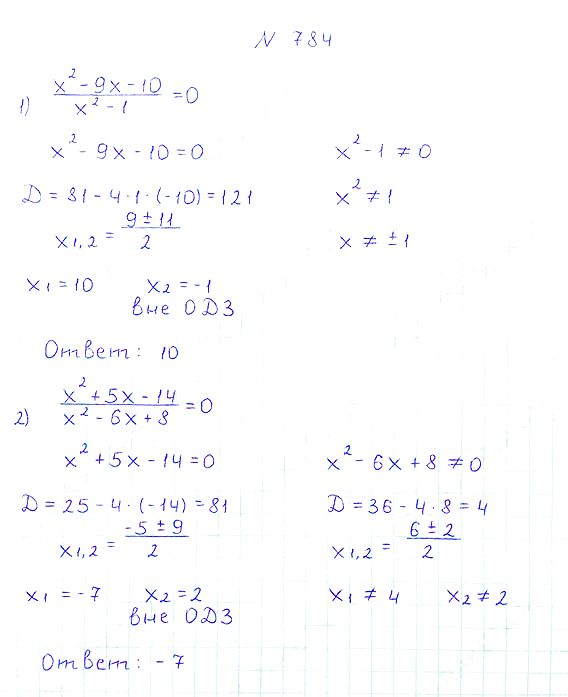 N 784
1) (x² - 9x - 10)/(x² - 1) = 0
x² - 9x - 10 = 0 x² - 1 ≠ 0
D = 81 - 4·1·(-10) = 121 x² ≠ 1
x₁,₂ = (9 ± 11)/2 x ≠ ±1
x₁ = 10 x₂ = -1
вне ОДЗ
Ответ: 10
2) (x² + 5x - 14)/(x² - 6x + 8) = 0
x² + 5x - 14 = 0 x² - 6x + 8 ≠ 0
D = 25 - 4·(-14) = 81 D = 36 - 4·8 = 4
x₁,₂ = (-5 ± 9)/2 x₁,₂ = (6 ± 2)/2
x₁ = -7 x₂ = 2 x₁ ≠ 4 x₂ ≠ 2
вне ОДЗ
Ответ: -7